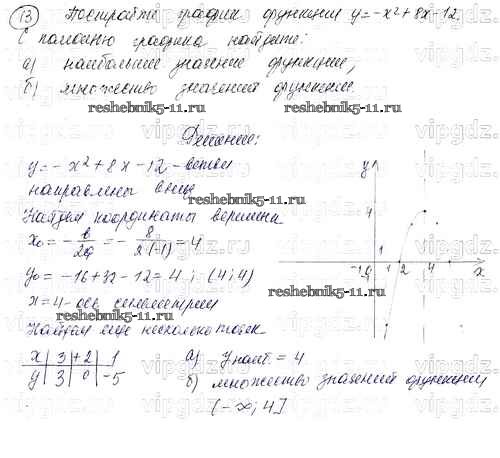 13 Постройте график функции y = -x² + 8x - 12.
С помощью графика найдите:
а) наибольшее значение функции,
б) множество значений функции.
reshebnik5-11.ru
reshebnik5-11.ru
Решение:
y = -x² + 8x - 12 - ветви
направлены вниз
reshebnik5-11.ru
Найдем координаты вершины
x₀ = - b/2a = - 8/2·(-1) = 4
y₀ = -16 + 32 - 12 = 4; (4; 4)
reshebnik5-11.ru
reshebnik5-11.ru
x = 4 - ось симметрии
Найдем еще несколько точек
x | 3 | 2 | 1
y | 3 | 0 | -5
а) y наиб. = 4
б) множество значений функции
(-∞; 4]
y
4
1
-1 0 1 2 4 x
vipgdz.ru